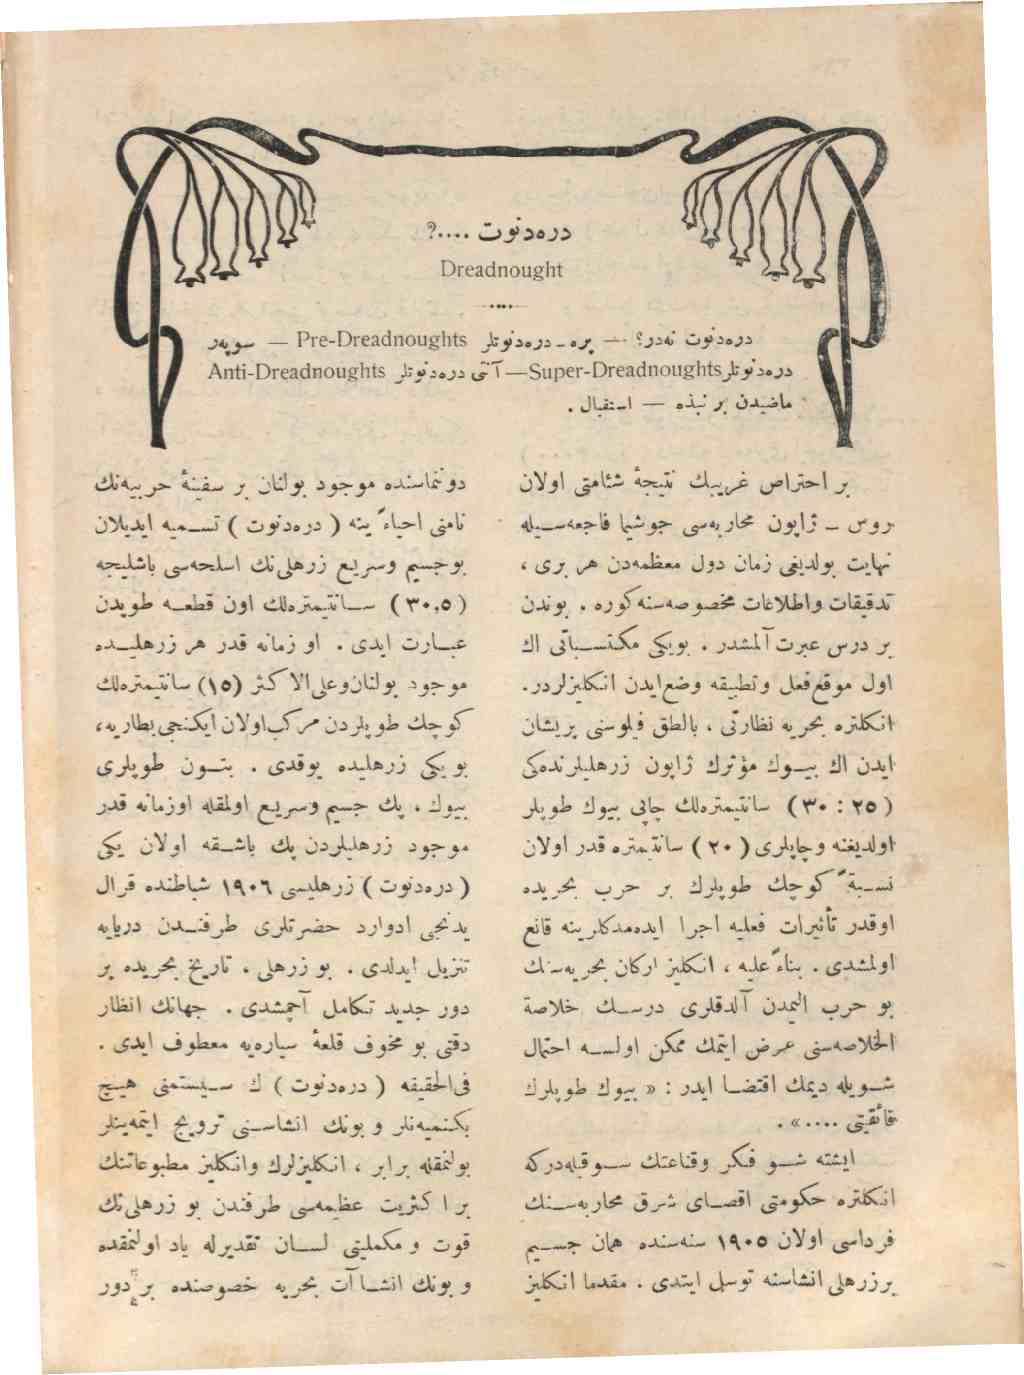 دره‌دنوت ....؟
Dreadnought
دره‌دنوت نه‌در؟ — پره ـ دره‌دنوتلر Pre-Dreadnoughts — سوپه‌ر
دره‌دنوتلر Super-Dreadnoughts — آنتی دره‌دنوتلر Anti-Dreadnoughts
ماضیدن بر نبذه — استقبال .
بر احتراص غریبك نتیجهٔ شئامتی اولان
روس ـ ژاپون محاربه‌سی جوشیما فاجعه‌سیله
نهایت بولدیغی زمان دول معظمه‌دن هر بری ،
تدقیقات و اطلاعات مخصوصه‌سنه کوره ، بوندن
بر درس عبرت آلمشدر . بویکی مکتسباتی اك
اول موقع فعل و تطبیقه وضع ایدن انکلیزلردر.
انکلتره بحریه نظارتی ، بالطق فیلوسنی پریشان
ایدن اك بیوك مؤثرك ژاپون زرهلیلرنده‌کی
(٢٥ : ٣٠) سانتیمتره‌لك چاپی بیوك طوپلر
اولدیغنه و چاپلری (٢٠) سانتیمتره قدر اولان
نسبةً کوچك طوپلرك بر حرب بحریده
اوقدر تأثیرات فعلیه اجرا ایده‌مدکلرینه قانع
اولمشدی . بناءً علیه ، انکلیز ارکان بحریه‌سنك
بو حرب الیمدن آلدقلری درسك خلاصة
الخلاصه‌سنی عرض ایتمك ممکن اولسه احتمال
شویله دیمك اقتضا ایدر : « بیوك طوپلرك
فائقیتی ....» .
ایشته شو فکر و قناعتك سوقیله‌درکه
انکلتره حکومتی اقصای شرق محاربه‌سنك
فرداسی اولان ١٩٠٥ سنه‌سنده همان جسیم
برزرهلی انشاسنه توسل ایتدی . مقدما انکلیز
دونماسنده موجود بولنان بر سفینهٔ حربیه‌نك
نامنی احیاءً ینه ( دره‌دنوت ) تسمیه ایدیلان
بوجسیم وسریع زرهلی‌نك اسلحه‌سی باشلیجه
(٣٠,٥) سانتیمتره‌لك اون قطعه طوپدن
عبارت ایدی . او زمانه قدر هر زرهلیده
موجود بولنان‌وعلی‌الاکثر (١٥) سانتیمتره‌لك
کوچك طوپلردن مرکب‌اولان ایکنجی بطاریه،
بو یکی زرهلیده یوقدی . بتون طوپلری
بیوك ، پك جسیم وسریع اولمقله اوزمانه قدر
موجود زرهلیلردن پك باشقه اولان یکی
( دره‌دنوت ) زرهلیسی ١٩٠٦ شباطنده قرال
یدنجی ادوارد حضرتلری طرفندن دریایه
تنزیل ایدلدی . بو زرهلی ، تاریخ بحریده بر
دور جدید تکامل آچمشدی . جهانك انظار
دقتی بو مخوف قلعهٔ سیاره‌یه معطوف ایدی .
فی‌الحقیقه ( دره‌دنوت ) ك سیستمنی هیچ
بکنمیه‌نلر و بونك انشاسنی ترویج ایتمه‌ینلر
بولنمقله برابر ، انکلیزلرك وانکلیز مطبوعاتنك
بر اکثریت عظیمه‌سی طرفندن بو زرهلی‌نك
قوت و مکملیتی لسان تقدیرله یاد اولنمقده
و بونك انشاآت بحریه خصوصنده بر "دور